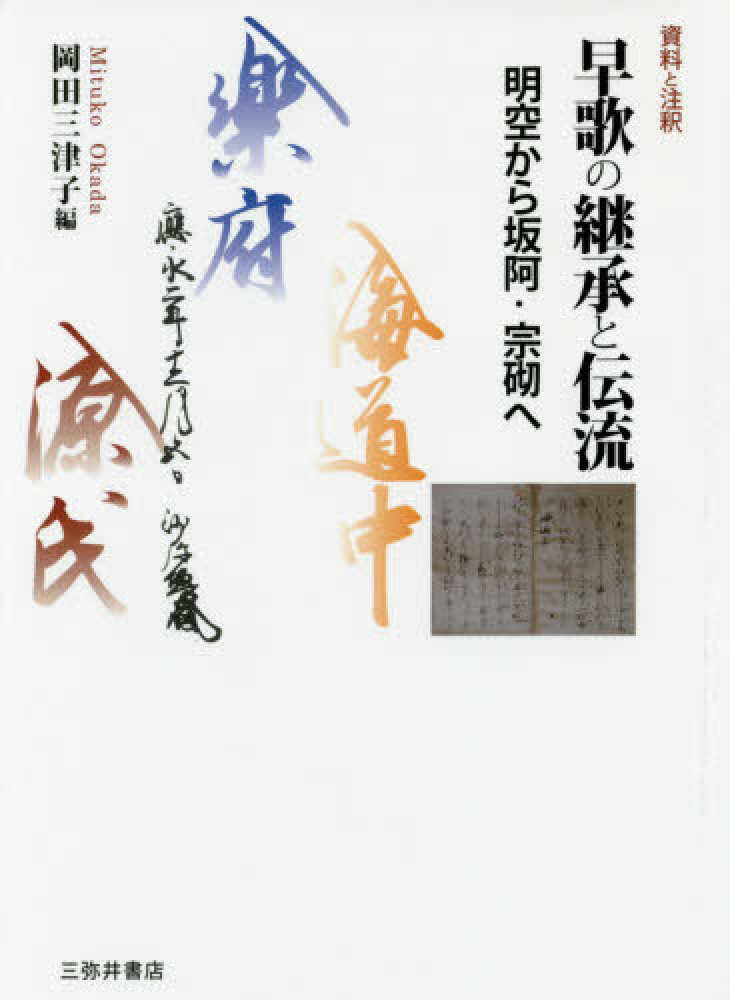 資料と注釈
早歌の継承と伝流
明空から坂阿・宗砌へ
海道中
樂府
應永二年十二月廿日
源氏
Mituko Okada
岡田三津子編
三弥井書店